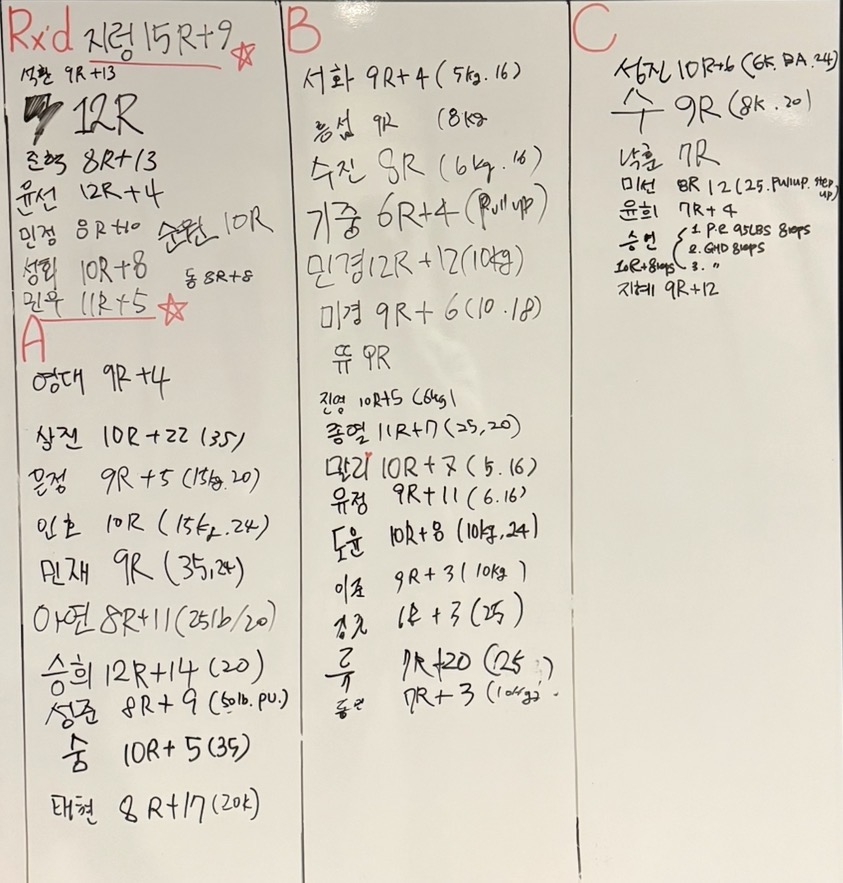 Rx'd 지렁 15R+9
석환 9R+13
12R
준혁 8R+13
윤선 12R+4
민정 8R+10 순원 10R
성회 10R+8 동 8R+8
민우 11R+5
A
영대 9R+4
상진 10R+22 (35)
은정 9R+5 (15kg.20)
인호 10R (15kg.24)
민재 9R (35,24)
아연 8R+11 (25lb/20)
승희 12R+14 (20)
성준 8R+9 (50lb.PU.)
숨 10R+5 (35)
태현 8R+17 (20k)
B
서화 9R+4 (5kg.16)
흥섭 9R (8kg
수진 8R (6kg.16)
기중 6R+4 (Pull up)
민경 12R+12 (10kg)
미경 9R+6 (10.18)
뜌 9R
진영 10R+5 (6kg)
종열 11R+7 (25,20)
말리 10R+7 (5.16)
유정 9R+11 (6.16)
도윤 10R+8 (10kg,24)
9R+3 (10kg)
6R+3 (25)
류 7R+20 (25)
7R+3 (10kg)
C
성진 10R+6 (6k.BA.24)
수 9R (8k.20)
낙훈 7R
미선 8R 12 (25.Pullup.step up)
윤희 7R+4
승언 1. P.C 95LBS 8reps
2. GHD 8reps
10R+8reps 3. "
지혜 9R+12